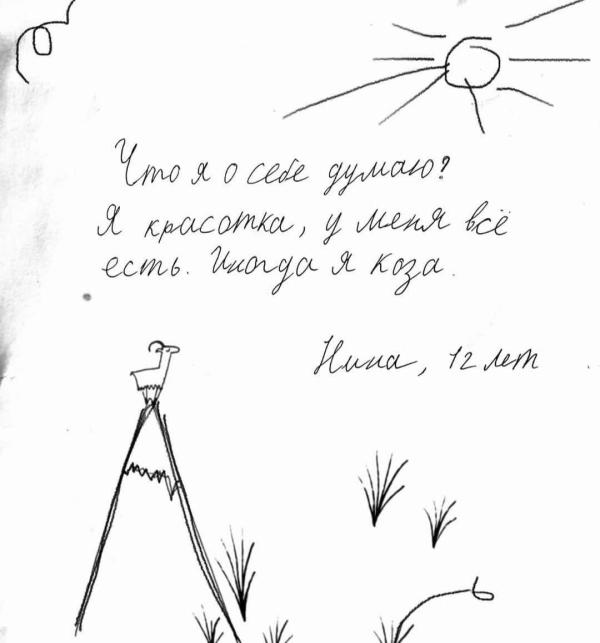 Что я о себе думаю?
Я красотка, у меня всё
есть. Иногда я коза.
Нина, 12 лет